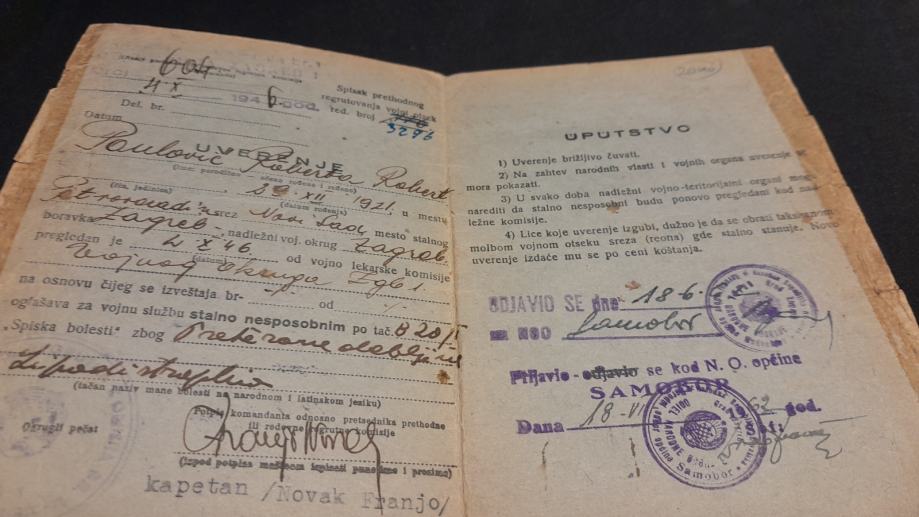 604
4 X
194 6 god.
Spisak prethodnog
regrutovanja vojni otsek
Del. br.
red. broj
3276
Datum
UVERENJE
Paulović Roberta Robert
(čin, jedinica)
29. XII. 1921. u mestu
(datum rođenja)
srez Novi Sad, mesto stalnog
boravka Zagreb, nadležni voj. okrug Zagreb.
pregledan je 2 X 46 od vojno lekarske komisije
(datum)
Vojnog Okruga Zgb I.
na osnovu čijeg se izveštaja br- od
oglašava za vojnu službu stalno nesposobnim po tač.
„Spiska bolesti" zbog
(tačan naziv mane bolesti na narodnom i latinskom jeziku)
Potpis komandanta odnosno pretsednika prethodne
ili redovne regrutne komisije
Okrugli pečat
(Ispod potpisa mašinom ispisati puno ime i prezime)
kapetan /Novak Franjo/
UPUTSTVO
1) Uverenje brižljivo čuvati.
2) Na zahtev narodnih vlasti i vojnih organa uverenje se
mora pokazati.
3) U svako doba nadležni vojno-teritorijalni organi mogu
narediti da stalno nesposobni budu ponovo pregledani kod
ležne komisije.
4) Lice koje uverenje izgubi, dužno je da se obrati taksiranom
molbom vojnom otseku sreza (reona) gde stalno stanuje. Novo
uverenje izdaće mu se po ceni koštanja.
ODJAVIO SE dne 18.6.
Samobor
Prijavio - odjavio se kod N. O. općine
SAMOBOR
Dana 18-VI 1962 god.
Samobor